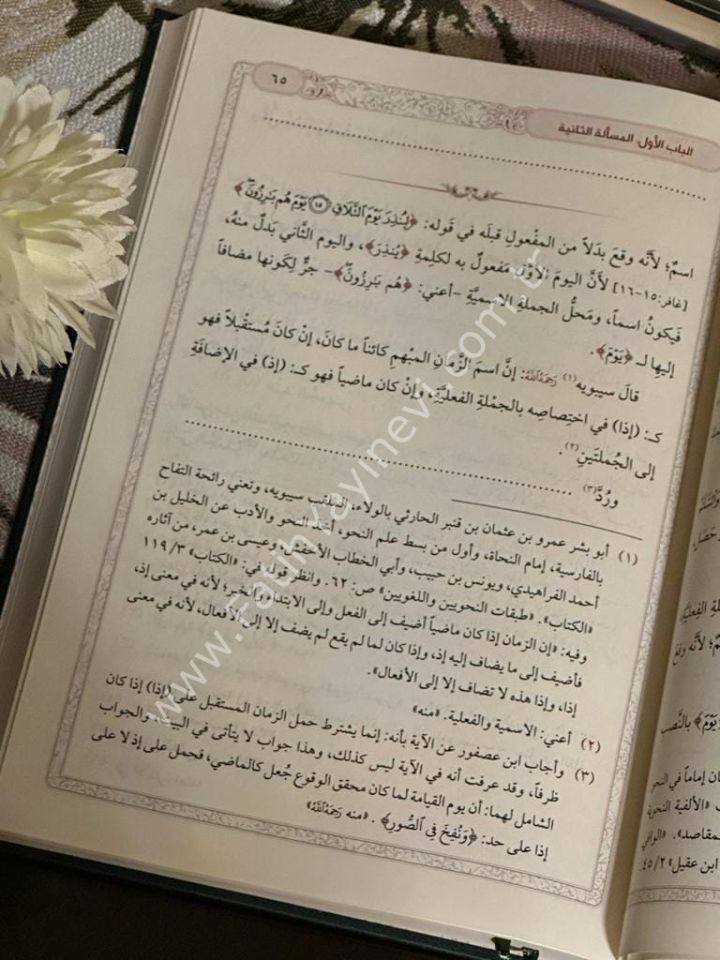 ٦٥
الباب الأول: المسألة الثانية
اسمٌ؛ لأنَّه وقعَ بدَلاً من المفْعولِ قبلَه في قَوله: ﴿لِيُنذِرَ يَوْمَ ٱلتَّلَاقِ ۝١٥ يَوْمَ هُم بَٰرِزُونَۖ﴾
[غافر:١٥-١٦] لأنَّ اليومَ الأوَّلَ مَفعولٌ به لكلِمةِ ﴿يُنذِرَ﴾، واليوم الثَّاني بَدلٌ منهُ،
فَيكونُ اسماً، ومَحلُّ الجملةِ الاسميَّةِ -أعني: ﴿هُم بَٰرِزُونَۖ﴾- جرٌّ لِكونِها مضافاً
إليها لـ ﴿يَوْمَ﴾.
قالَ سيبويه(١) رَحِمَهُ اللَّهُ: إنَّ اسمَ الزَّمانِ المبْهمِ كائناً ما كانَ، إنْ كانَ مُستَقْبلاً فهو
كـ: (إذا) في اختِصاصِه بالجمْلةِ الفعليَّةِ، وإنْ كان ماضياً فهو كـ: (إذ) في الإضافَةِ
إلى الجُملتَينِ(٢).
ورُدَّ(٣)
(١) أبو بشر عمرو بن عثمان بن قنبر الحارثي بالولاء، الملقب سيبويه، وتعني رائحة التفاح
بالفارسية، إمام النحاة، وأول من بسط علم النحو، أخذ النحو والأدب عن الخليل بن
أحمد الفراهيدي، ويونس بن حبيب، وأبي الخطاب الأخفش، وعيسى بن عمر، من آثاره
«الكتاب». «طبقات النحويين واللغويين» ص: ٦٢. وانظر قوله في: «الكتاب» ٣/ ١١٩
وفيه: «إن الزمان إذا كان ماضياً أضيف إلى الفعل وإلى الابتداء والخبر؛ لأنه في معنى إذ،
فأضيف إلى ما يضاف إليه إذ، وإذا كان لما لم يقع لم يضف إلا إلى الأفعال، لأنه في معنى
إذا، وإذا هذه لا تضاف إلا إلى الأفعال».
(٢) أعني: الاسمية والفعلية. «منه»
(٣) وأجاب ابن عصفور عن الآية بأنه: إنما يشترط حمل الزمان المستقبل على (إذا) إذا كان
ظرفاً، وقد عرفت أنه في الآية ليس كذلك، وهذا جواب لا يتأتى في البيت، والجواب
الشامل لهما: أن يوم القيامة لما كان محقق الوقوع جُعل كالماضي، فحمل على إذ لا على
إذا على حد: ﴿وَنُفِخَ فِي ٱلصُّورِ﴾. «منه رَحِمَهُ اللَّهُ»
www.fatihyayinevi.com.tr